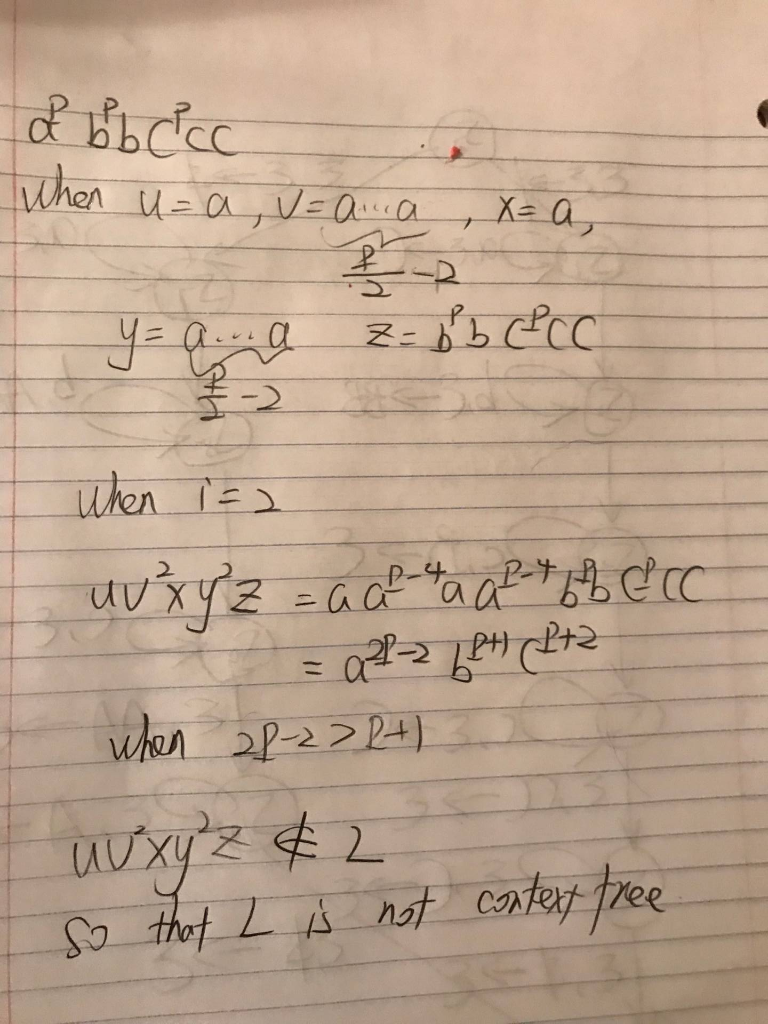 a^p b^p b c^p cc
When u = a, v = a...a, x = a,
p/2 - 2
y = a...a z = b^p b c^p cc
p/2 - 2
When i = 2
uv²xy²z = a a^{p-4} a a^{p-4} b^p b c^p cc
= a^{2p-2} b^{p+1} c^{p+2}
when 2p-2 > p+1
uv²xy²z ∉ L
so that L is not context free